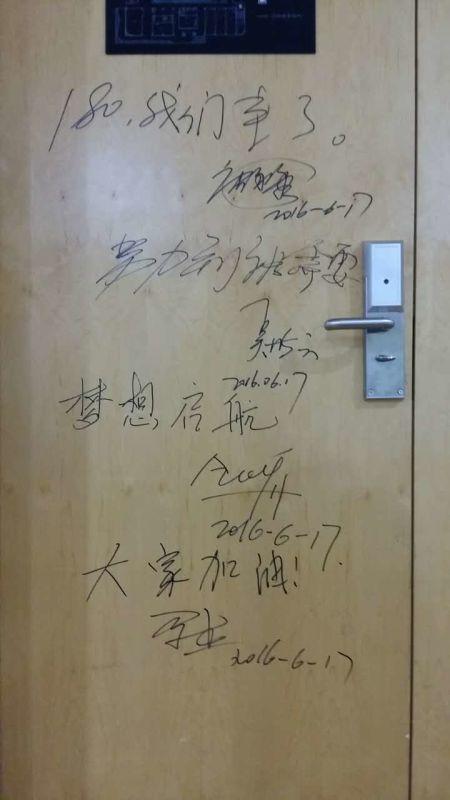 180，我们来了。
2016-6-17
努力到被需要
2016.06.17
梦想启航
2016-6-17.
大家加油！
2016-6-17